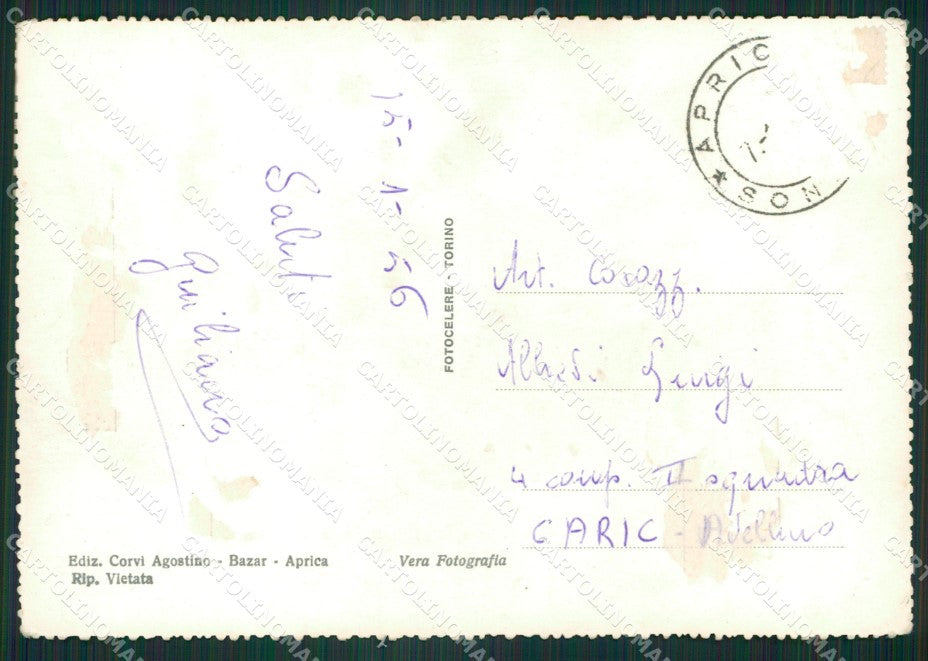 15-1-56
Saluti
Giuliana
FOTOCELERE - TORINO
APRIC
★ SON
Art. Corazz.
Alberti Luigi
4 comp. II squadra
CARIC - Avellino
Ediz. Corvi Agostino - Bazar - Aprica
Rip. Vietata
Vera Fotografia
CARTOLINOMANIA